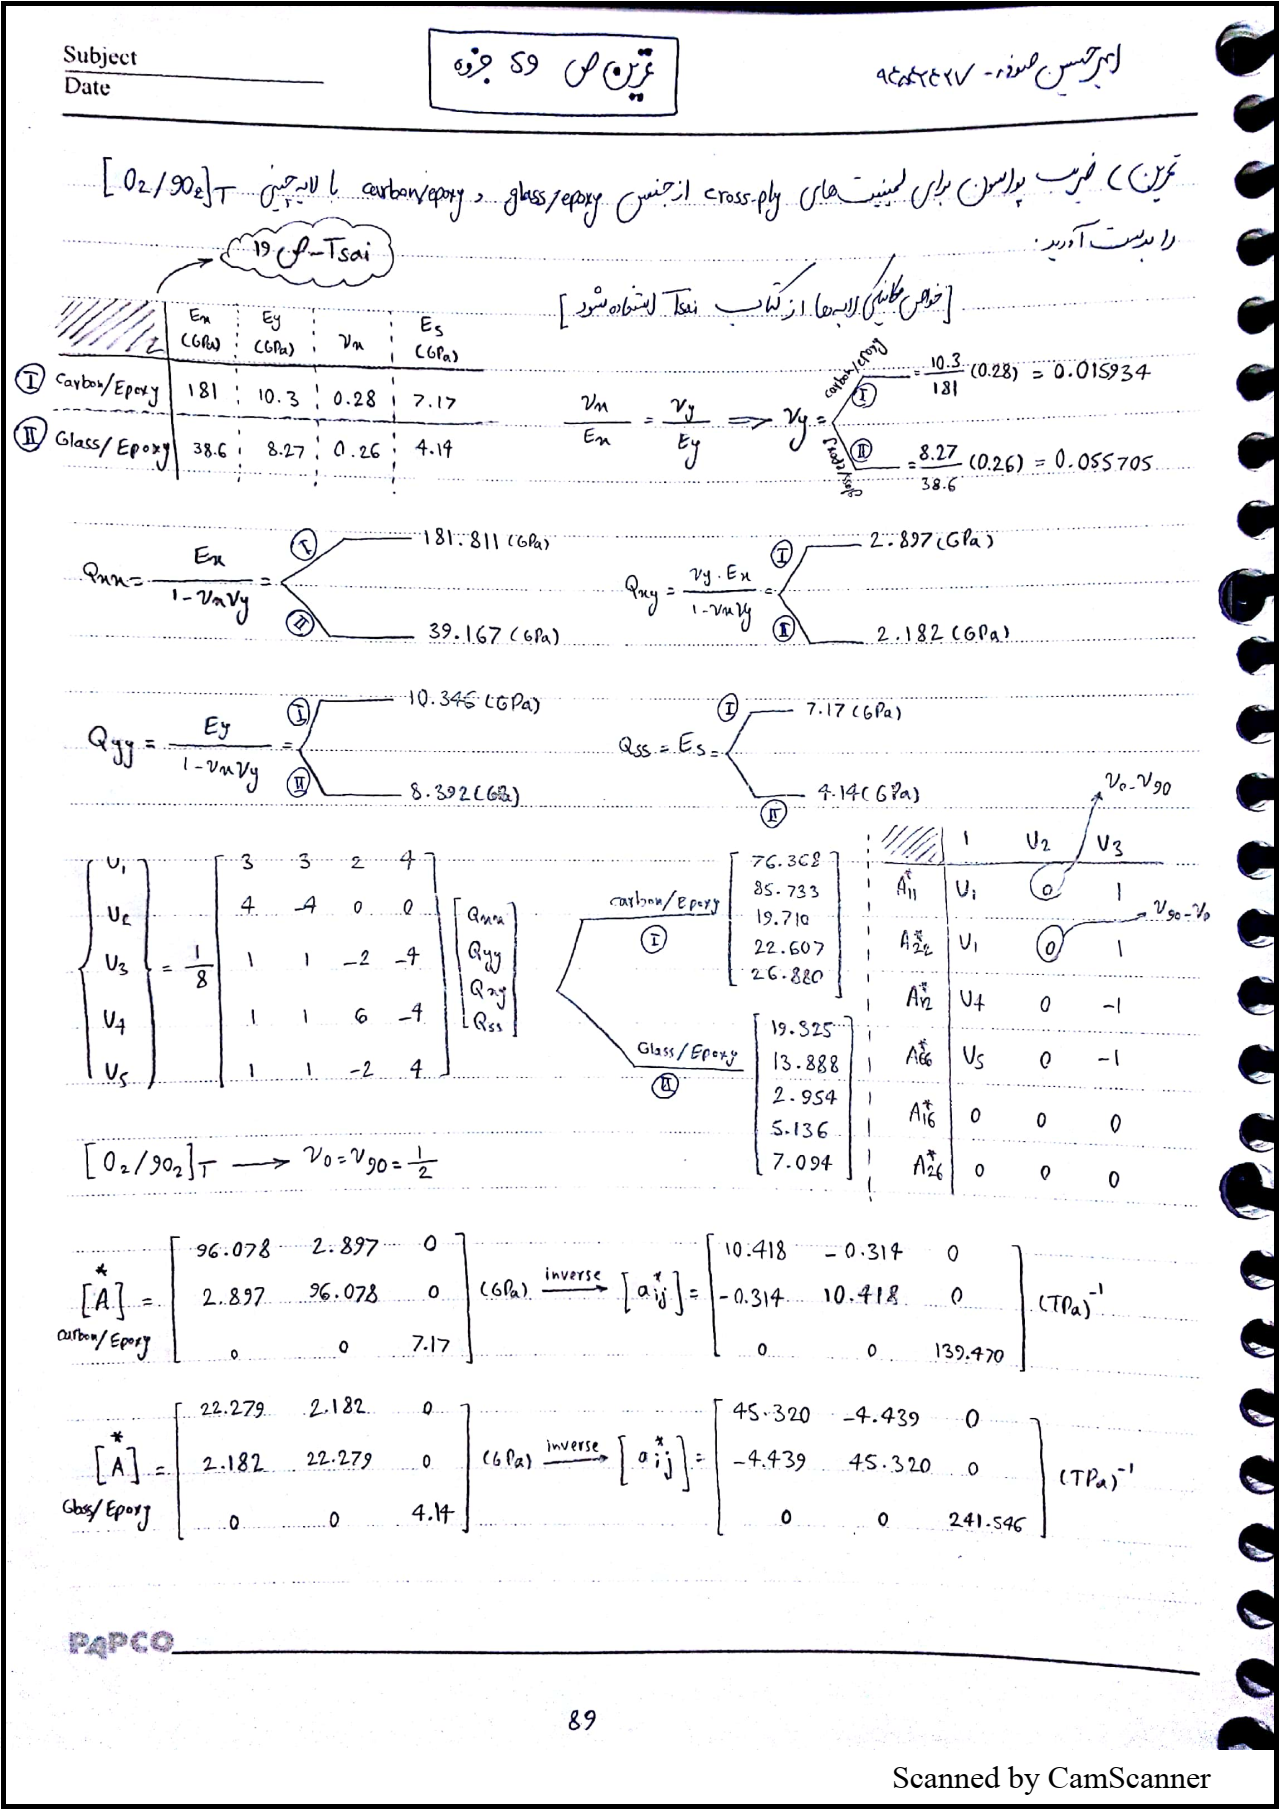 Subject
Date
تمرین ص 59 جزوه
امیرحسین
تمرین) ضریب پواسون برای لمینیت‌های cross-ply از جنس glass/epoxy و carbon/epoxy با لایه‌چینی [0₂/90₂]T
را بدست آورید.
Tsai – ص 19
[خواص مکانیکی لایه‌ها از کتاب Tsai استفاده شود]
Ex (GPa) Ey (GPa) νx Es (GPa)
I Carbon/Epoxy 181 10.3 0.28 7.17
II Glass/Epoxy 38.6 8.27 0.26 4.14
νx/Ex = νy/Ey ⟹ νy =
carbon/epoxy I = 10.3/181 (0.28) = 0.015934
glass/epoxy II = 8.27/38.6 (0.26) = 0.055705
Qxx = Ex/(1-νxνy) =
I 181.811 (GPa)
II 39.167 (GPa)
Qxy = νy.Ex/(1-νxνy) =
I 2.897 (GPa)
II 2.182 (GPa)
Qyy = Ey/(1-νxνy) =
I 10.346 (GPa)
II 8.392 (GPa)
Qss = Es =
I 7.17 (GPa)
II 4.14 (GPa)
{U1 U2 U3 U4 U5} = 1/8
3 3 2 4
4 -4 0 0
1 1 -2 -4
1 1 6 -4
1 1 -2 4
[Qxx Qyy Qxy Qss]
carbon/Epoxy I
76.368
85.733
19.710
22.607
26.880
Glass/Epoxy II
19.325
13.888
2.954
5.136
7.094
ν0-ν90
1 U2 U3
A*11 U1 0 1
ν90-ν0
A*22 U1 0 1
A*12 U4 0 -1
A*66 U5 0 -1
A*16 0 0 0
A*26 0 0 0
[0₂/90₂]T ⟶ ν0 = ν90 = 1/2
[A*] Carbon/Epoxy =
96.078 2.897 0
2.897 96.078 0
0 0 7.17
(GPa) inverse ⟶ [a*ij] =
10.418 -0.314 0
-0.314 10.418 0
0 0 139.470
(TPa)⁻¹
[A*] Glass/Epoxy =
22.279 2.182 0
2.182 22.279 0
0 0 4.14
(GPa) inverse ⟶ [a*ij] =
45.320 -4.439 0
-4.439 45.320 0
0 0 241.546
(TPa)⁻¹
PAPCO
89
Scanned by CamScanner